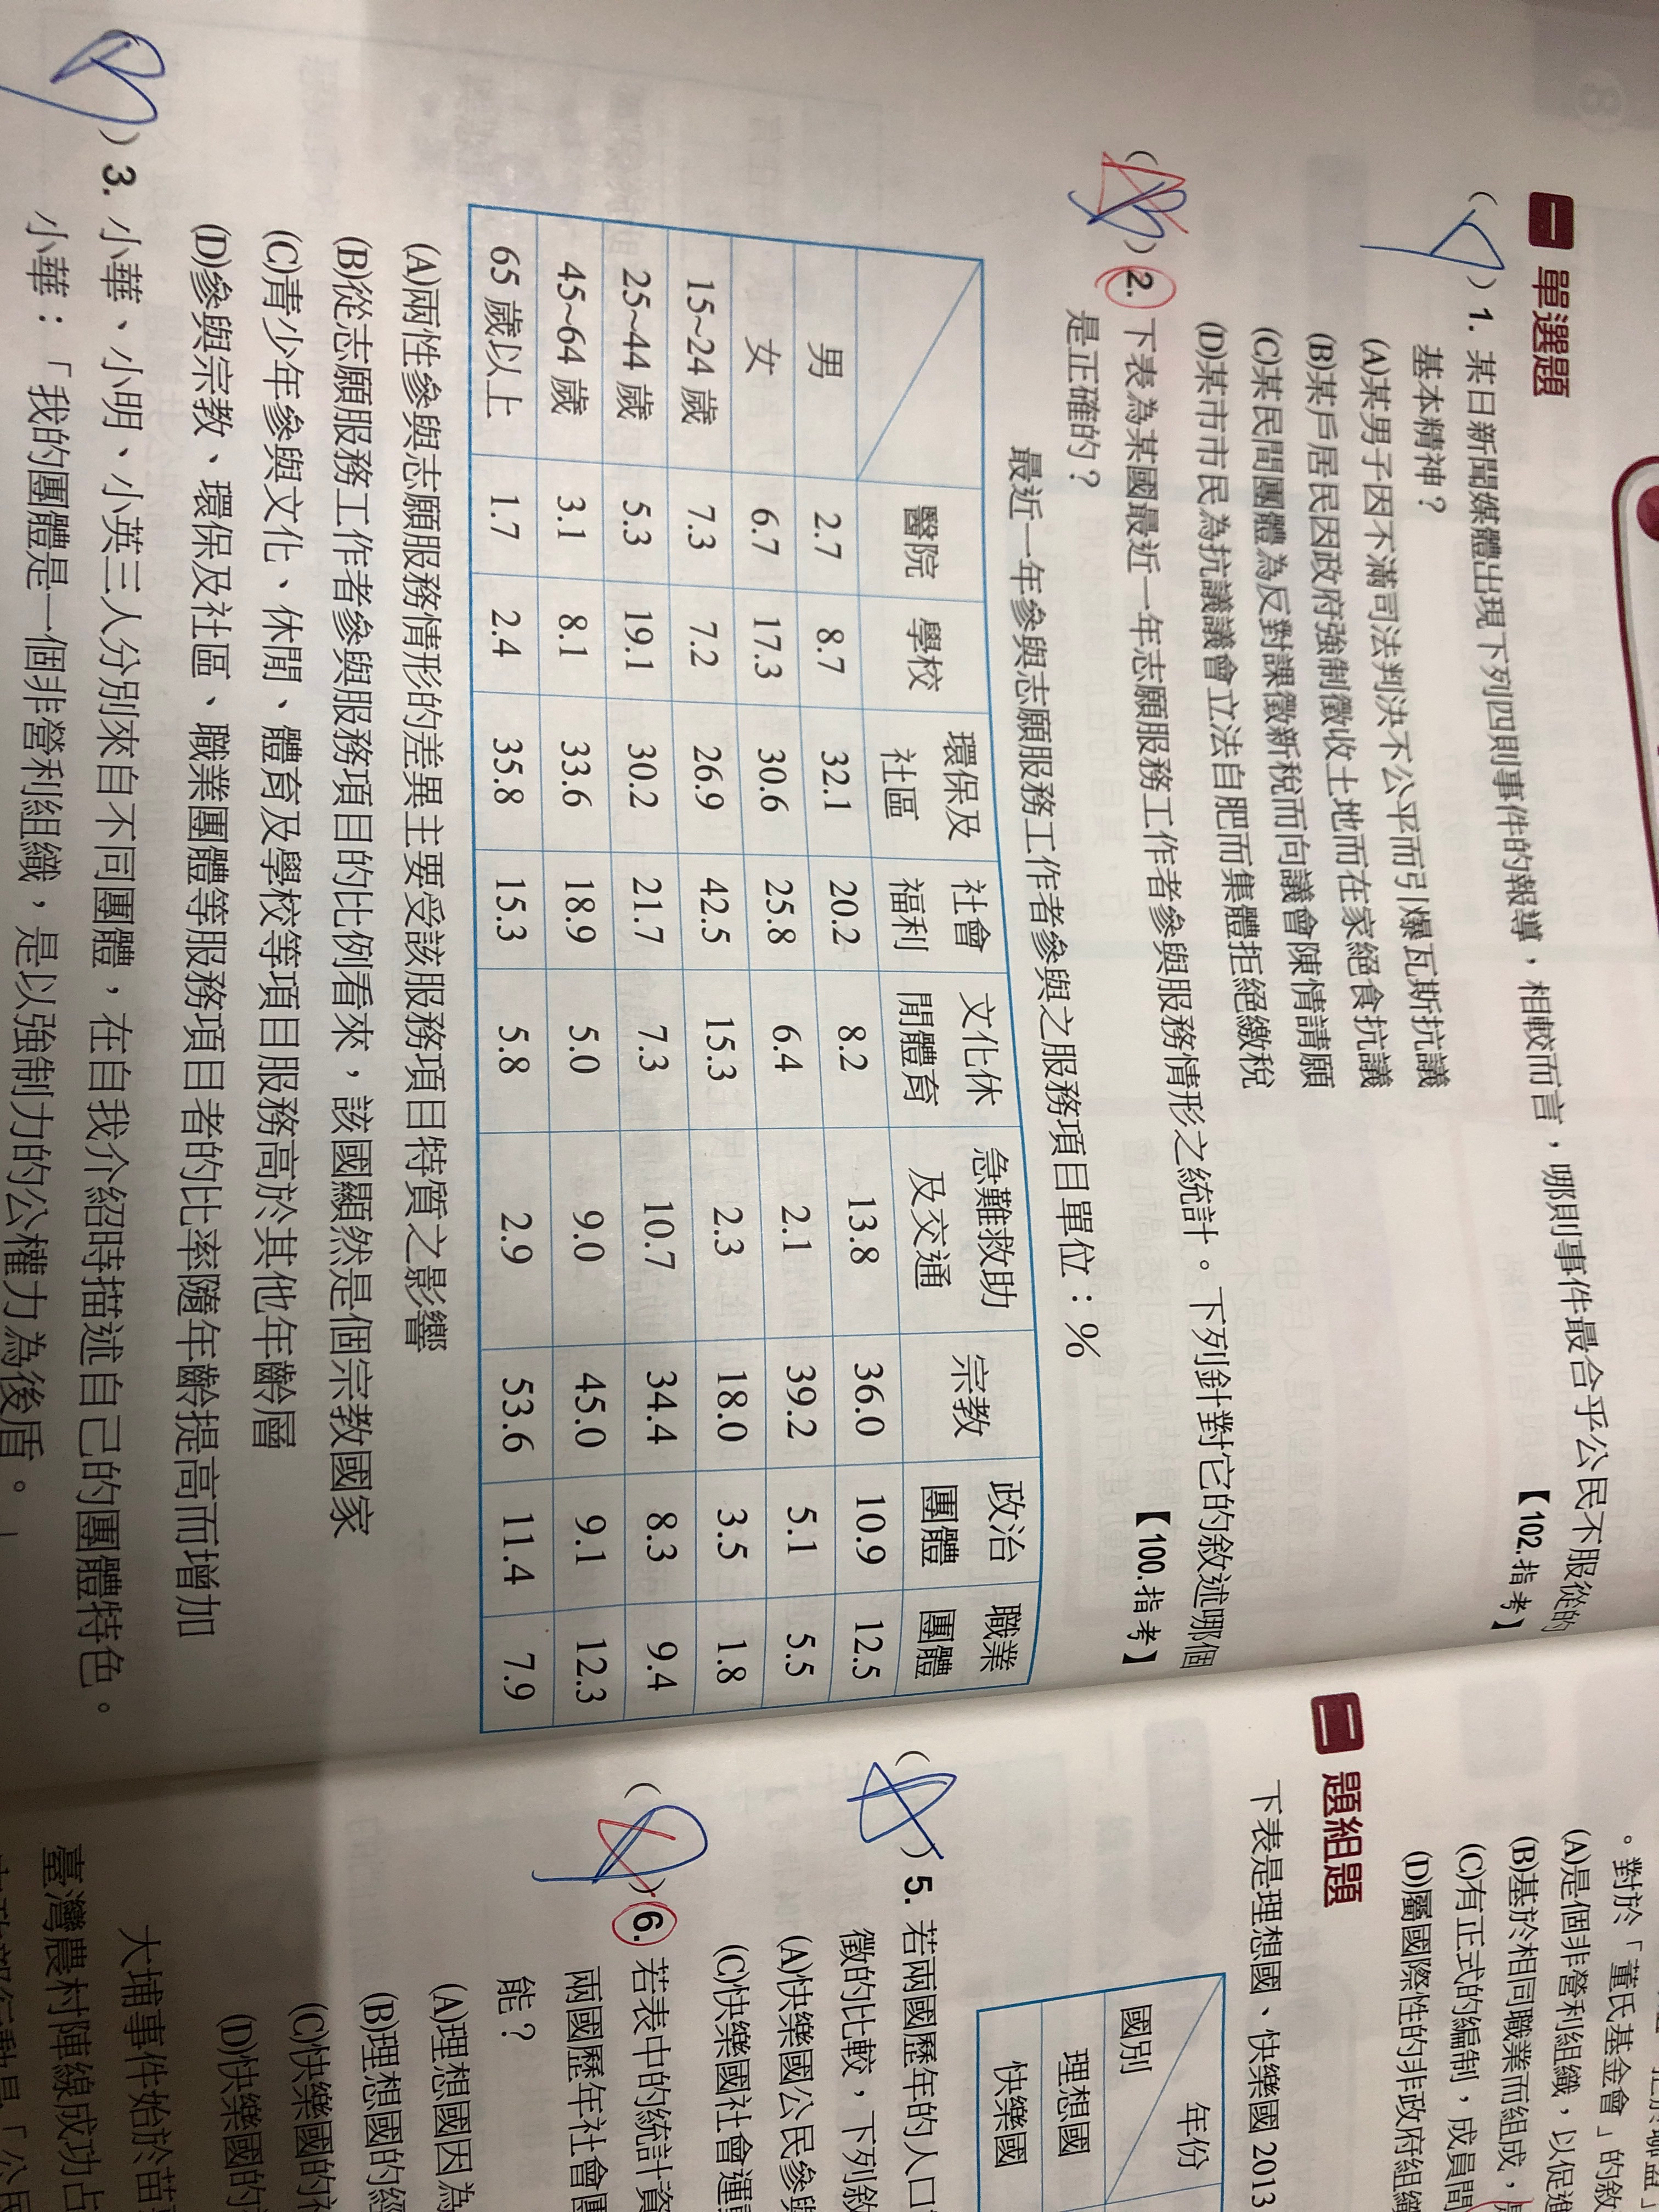 一 單選題
( D ) 1. 某日新聞媒體出現下列四則事件的報導，相較而言，哪則事件最合乎公民不服從的
基本精神？ 【102.指考】
(A)某男子因不滿司法判決不公平而引爆瓦斯抗議
(B)某戶居民因政府強制徵收土地而在家絕食抗議
(C)某民間團體為反對課徵新稅而向議會陳情請願
(D)某市市民為抗議議會立法自肥而集體拒絕繳稅
( ) 2. 下表為某國最近一年志願服務工作者參與服務情形之統計。下列針對它的敘述哪個
是正確的？ 【100.指考】
最近一年參與志願服務工作者參與之服務項目單位：%
醫院 學校 環保及社區 社會福利 文化休閒體育 急難救助及交通 宗教 政治團體 職業團體
男 2.7 8.7 32.1 20.2 8.2 13.8 36.0 10.9 12.5
女 6.7 17.3 30.6 25.8 6.4 2.1 39.2 5.1 5.5
15~24 歲 7.3 7.2 26.9 42.5 15.3 2.3 18.0 3.5 1.8
25~44 歲 5.3 19.1 30.2 21.7 7.3 10.7 34.4 8.3 9.4
45~64 歲 3.1 8.1 33.6 18.9 5.0 9.0 45.0 9.1 12.3
65 歲以上 1.7 2.4 35.8 15.3 5.8 2.9 53.6 11.4 7.9
(A)兩性參與志願服務情形的差異主要受該服務項目特質之影響
(B)從志願服務工作者參與服務項目的比例看來，該國顯然是個宗教國家
(C)青少年參與文化、休閒、體育及學校等項目服務高於其他年齡層
(D)參與宗教、環保及社區、職業團體等服務項目者的比率隨年齡提高而增加
) 3. 小華、小明、小英三人分別來自不同團體，在自我介紹時描述自己的團體特色。
小華：「我的團體是一個非營利組織，是以強制力的公權力為後盾。」
。對於「董氏基金會」的敘
(A)是個非營利組織，以促進
(B)基於相同職業而組成，
(C)有正式的編制，成員間
(D)屬國際性的非政府組織
二 題組題
下表是理想國、快樂國 2013
年份
國別
理想國
快樂國
( ) 5. 若兩國歷年的人口
徵的比較，下列敘
(A)快樂國公民參與
(C)快樂國社會運動
( ) 6. 若表中的統計資
兩國歷年社會團
能？
(A)理想國因為
(B)理想國的經
(C)快樂國的社
(D)快樂國的
大埔事件始於苗
臺灣農村陣線成功占